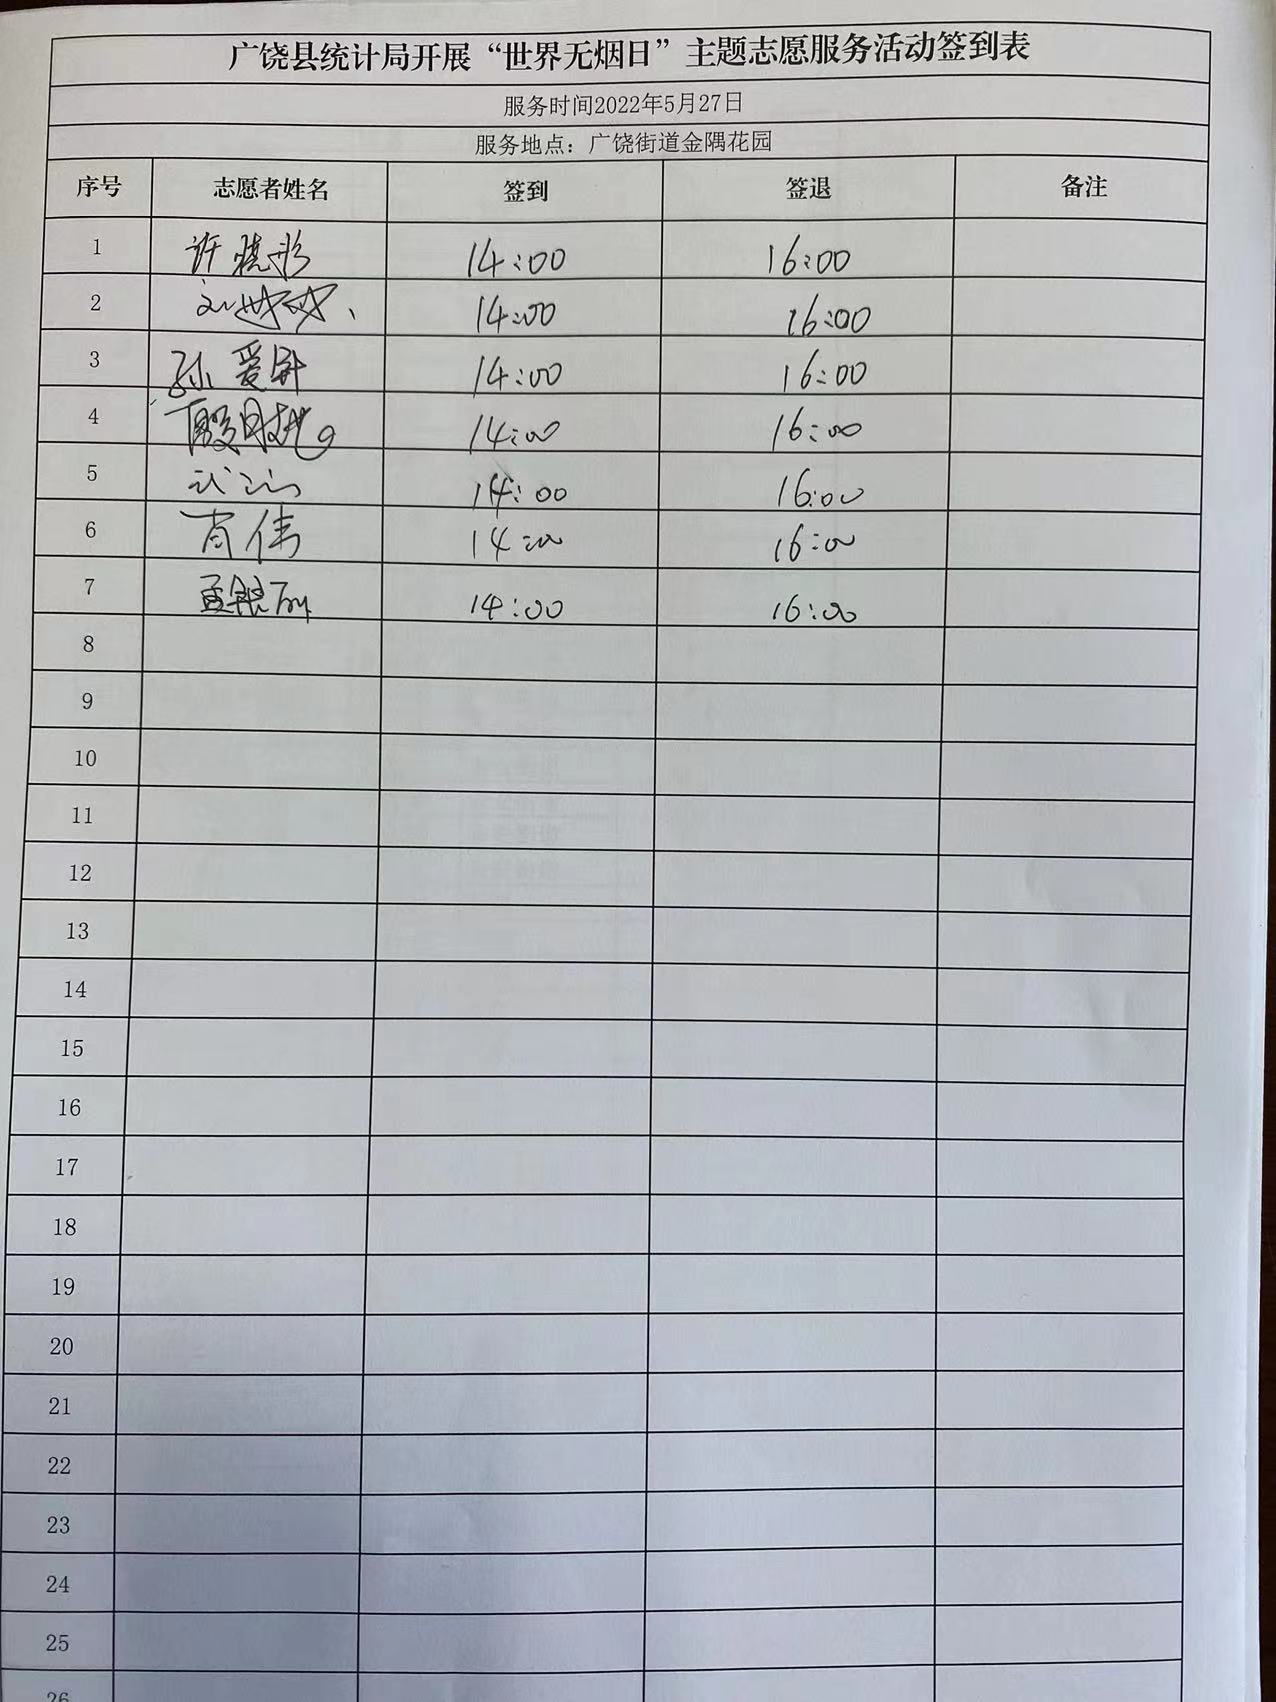 广饶县统计局开展“世界无烟日”主题志愿服务活动签到表
服务时间2022年5月27日
服务地点：广饶街道金隅花园
序号 志愿者姓名 签到 签退 备注
1 许晓彤 14:00 16:00
2 14:00 16:00
3 孙爱 14:00 16:00
4 殷 14:00 16:00
5 14:00 16:00
6 肖伟 14:00 16:00
7 孟银 14:00 16:00
8
9
10
11
12
13
14
15
16
17
18
19
20
21
22
23
24
25
26